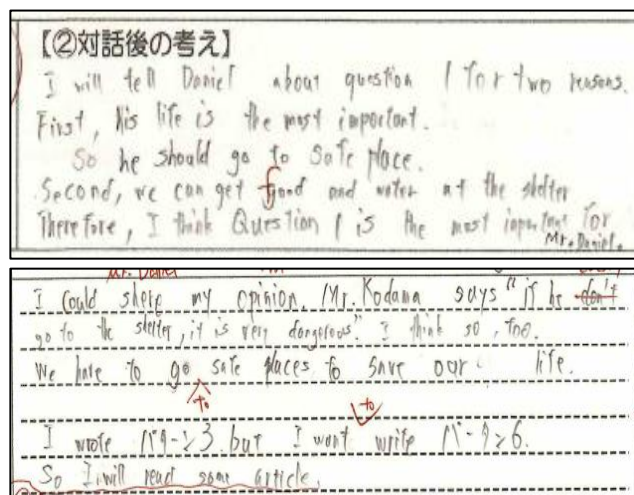 【②対話後の考え】
I will tell Daniel about question 1 for two reasons.
First, his life is the most important.
So he should go to safe place.
Second, we can get food and water at the shelter
Therefore, I think Question 1 is the most important for
Mr. Daniel.
Mr. Daniel
I could shere my opinion. Mr. Kodama says "if he don't
go to the shelter, it is very dangerous." I think so, too.
We have to go safe places to save our life.
to
to
I wrote パターン3. but I want write パターン6.
So I will read some article.